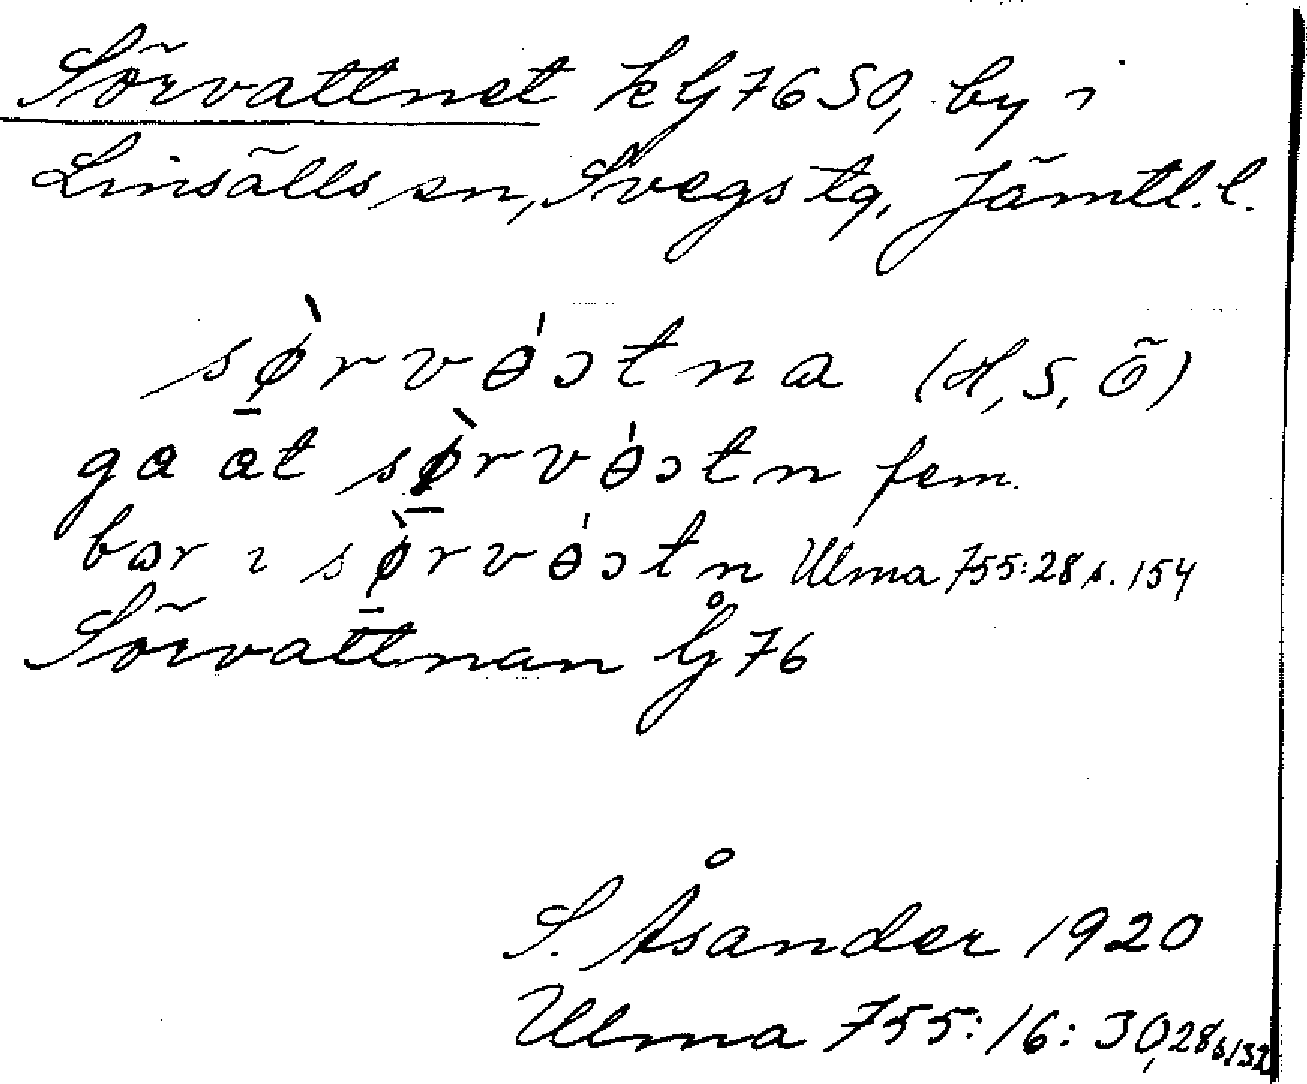 Sörvattnet k G 76 SO, by i
Linsälls sn, Svegs tg, Jämtl. l.
sø̱̀rvɵ́ɔtna (H, S, Ö)
ga at sø̱̀rvɵ́ɔtn fem.
bor ı sø̱̀rvɵ́ɔtn Ulma 755:28 s. 154
Sörvattnan G 76
S. Åsander 1920
Ulma 755:16: 30, 28